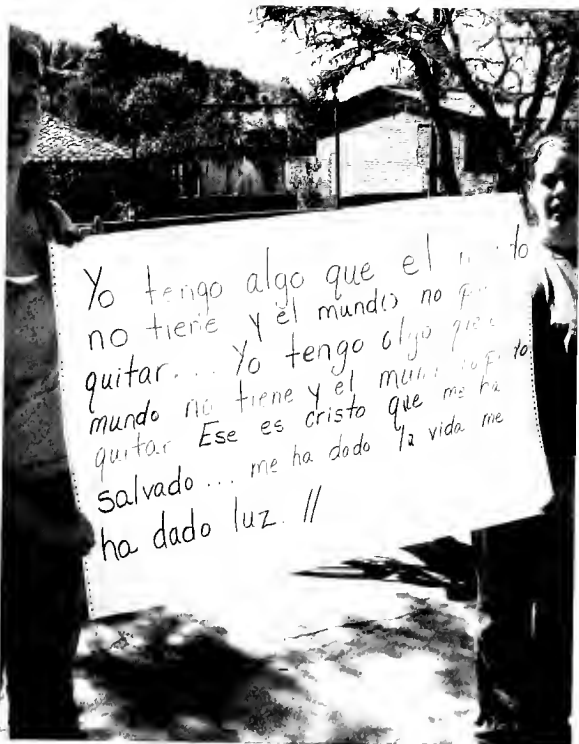 Yo tengo algo que el
no tiene y el mundo no
quitar... Yo tengo algo que
mundo no tiene y el
quitar Ese es cristo que me ha
salvado... me ha dado la vida me
ha dado luz. //